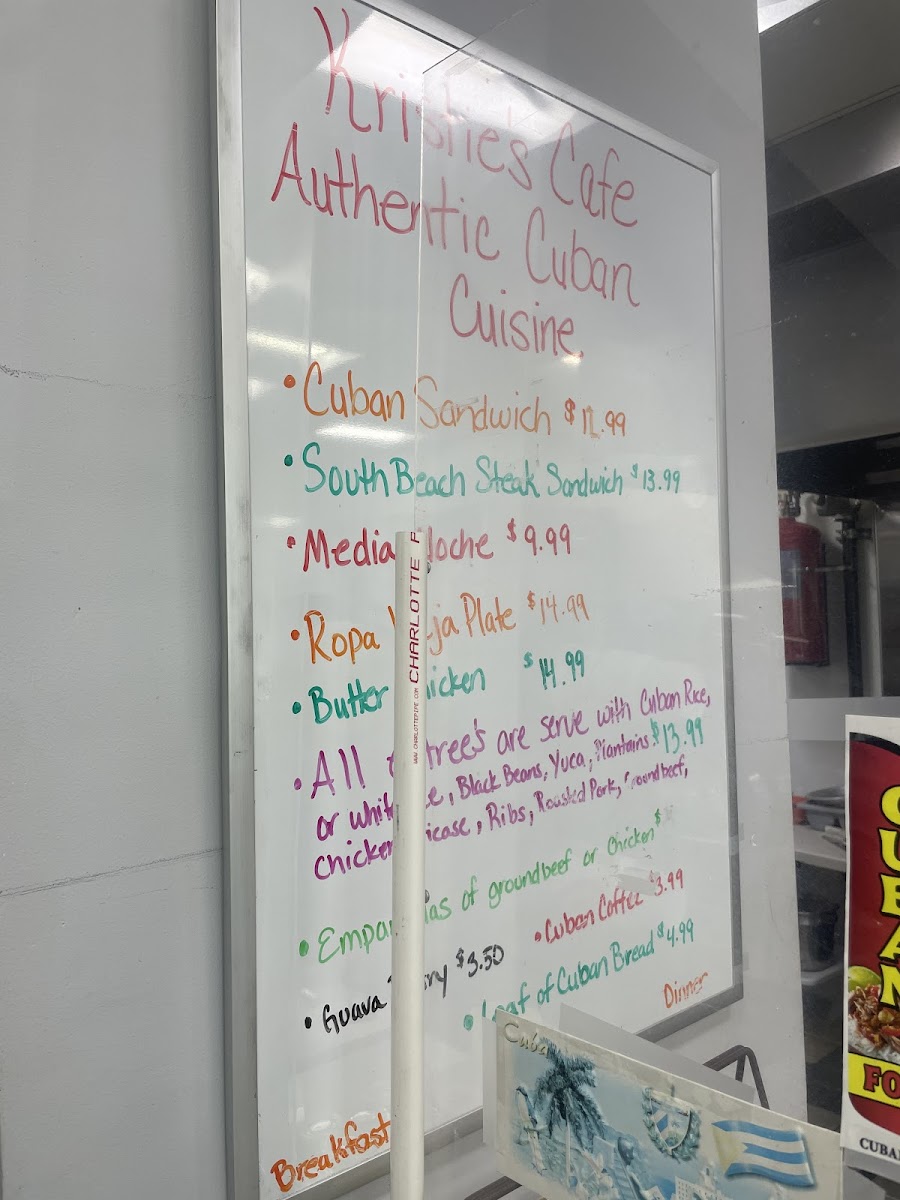 Kristie's Cafe
Authentic Cuban
Cuisine
• Cuban Sandwich $11.99
• South Beach Steak Sandwich $13.99
• Media Noche $9.99
• Ropa ja Plate $14.99
• Butter icken $14.99
• All trees are serve with Cuban Rice,
or whit e, Black Beans, Yuca, Plantains $13.99
Chicken icase, Ribs, Roasted Pork, Groundbeef,
• Empa as of groundbeef or Chicken $
• Guava ry $3.50
• Cuban Coffee $3.99
• Loaf of Cuban Bread $4.99
Dinner
Breakfast
WWW.CHARLOTTEPIPE.COM CHARLOTTE P
Cuba
CUBAN
FO
CUBA